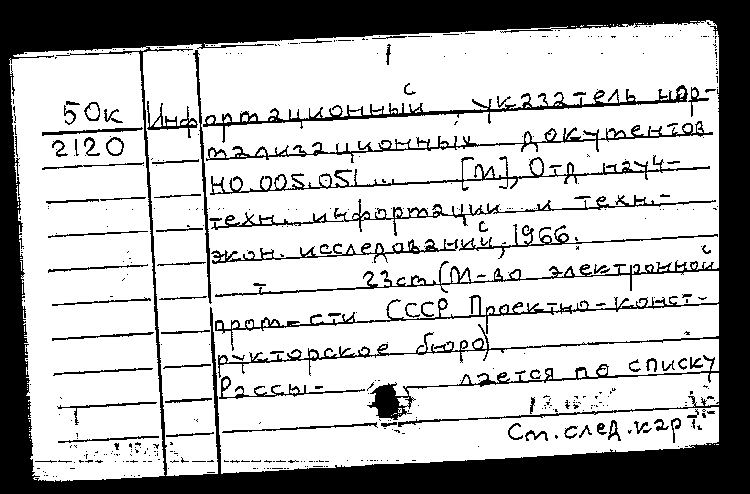 1
50к Информационный указатель нор-
2120 мализационных документов
НО.005.051... [М], Отд науч-
техн. информации и техн.-
экон. исследований, 1966.
т 23ст. (М-во электронной
пром-сти СССР. Проектно-конст-
рукторское бюро).
Рассы- лается по списку
См. след. карт.